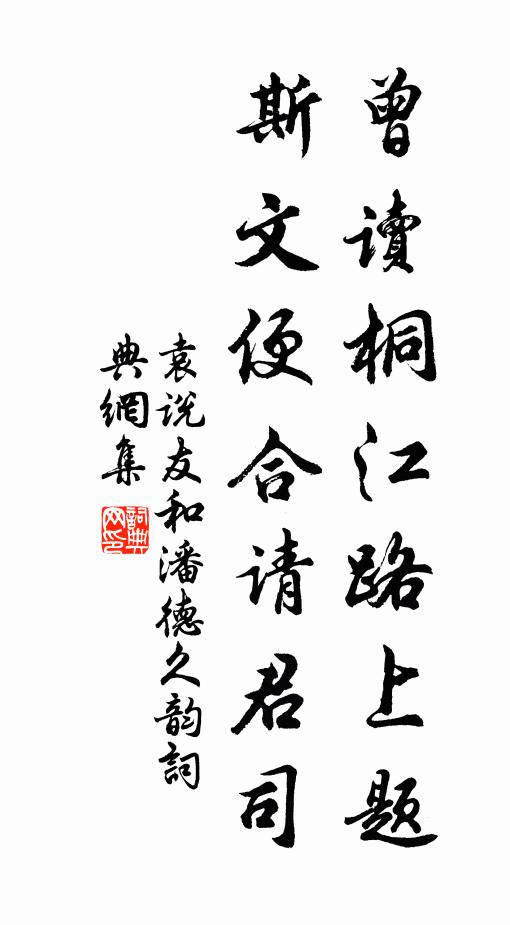 曾读桐江路上题
斯文便合请君司
袁说友和潘德久韵詞
典網集
詞典網印